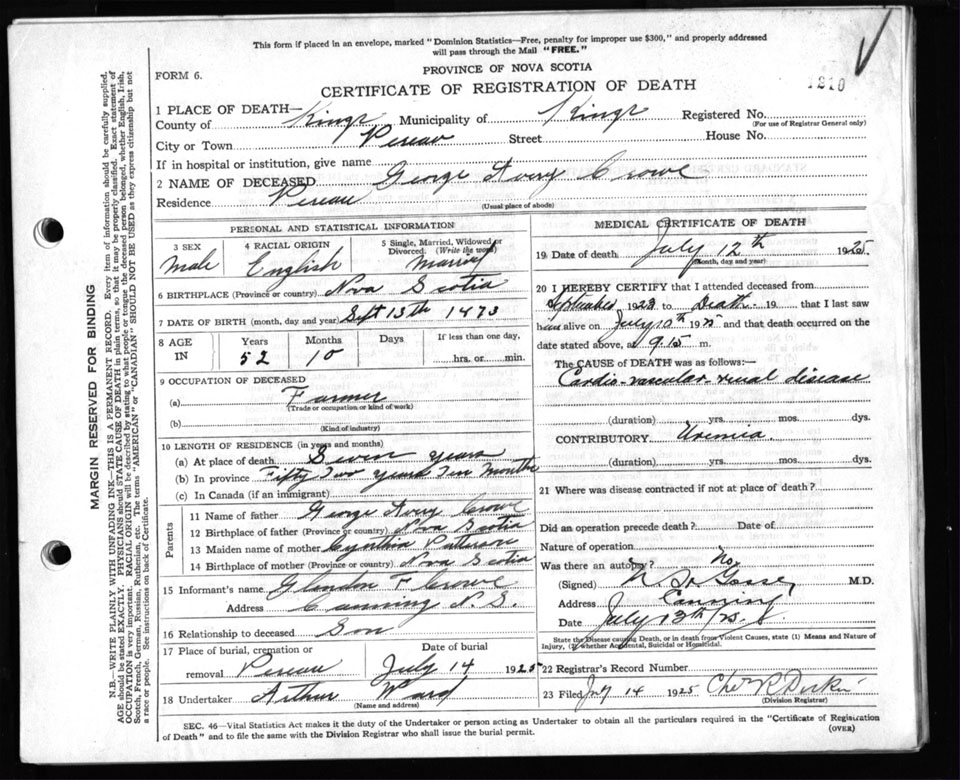 This form if placed in an envelope, marked "Dominion Statistics—Free, penalty for improper use $300," and properly addressed
will pass through the Mail "FREE."
PROVINCE OF NOVA SCOTIA
FORM 6.
CERTIFICATE OF REGISTRATION OF DEATH
1210
1 PLACE OF DEATH—
County of Kings Municipality of Kings Registered No.
(For use of Registrar General only)
City or Town Pereau Street House No.
If in hospital or institution, give name
2 NAME OF DECEASED George Avery Crowe
Residence Pereau
(Usual place of abode)
PERSONAL AND STATISTICAL INFORMATION
3 SEX 4 RACIAL ORIGIN 5 Single, Married, Widowed or
Divorced. (Write the word)
Male English Married
6 BIRTHPLACE (Province or country) Nova Scotia
7 DATE OF BIRTH (month, day and year) Sept 13th 1873
8 AGE IN Years Months Days If less than one day,
52 10 hrs. or min.
9 OCCUPATION OF DECEASED
(a) Farmer
(Trade or occupation or kind of work)
(b)
(Kind of industry)
10 LENGTH OF RESIDENCE (in years and months)
(a) At place of death Seven years
(b) In province Fifty Two years Ten Months
(c) In Canada (if an immigrant)
Parents
11 Name of father George Avery Crowe
12 Birthplace of father (Province or country) Nova Scotia
13 Maiden name of mother Cynthia
14 Birthplace of mother (Province or Country) Nova Scotia
15 Informant's name Glendon F Crowe
Address Canning N.S.
16 Relationship to deceased Son
17 Place of burial, cremation or Date of burial
removal Pereau July 14 1925
18 Undertaker Arthur Ward
(Name and address)
MEDICAL CERTIFICATE OF DEATH
19 Date of death July 12th 1925.
(Month, day and year)
20 I HEREBY CERTIFY that I attended deceased from
September 1923 to Death 19 that I last saw
him alive on July 10th 1925 and that death occurred on
date stated above, at 9.15 m.
The CAUSE of DEATH was as follows:—
Cardio-vascular-renal disease
(duration) yrs. mos. dys.
CONTRIBUTORY Uremia
(duration) yrs. mos. dys.
21 Where was disease contracted if not at place of death?
Did an operation precede death? Date of
Nature of operation
Was there an autopsy? No
(Signed) M.D.
Address Canning
Date July 13th/25.
State the Disease causing Death, or in death from Violent Causes, state (1) Means and Nature of
Injury, (2) whether Accidental, Suicidal or Homicidal.
22 Registrar's Record Number
23 Filed July 14 1925
(Division Registrar)
SEC. 46—Vital Statistics Act makes it the duty of the Undertaker or person acting as Undertaker to obtain all the particulars required in the "Certificate of Registration
of Death" and to file the same with the Division Registrar who shall issue the burial permit. (OVER)
MARGIN RESERVED FOR BINDING
N.B.—WRITE PLAINLY WITH UNFADING INK—THIS IS A PERMANENT RECORD. Every item of information should be carefully supplied.
AGE should be stated EXACTLY. PHYSICIANS should STATE CAUSE OF DEATH in plain terms, so that it may be properly classified. Exact statement of
OCCUPATION is very important. RACIAL ORIGIN will be described by stating to what people or tongue the deceased person belonged, whether English, Irish,
Scotch, French, German, Russian, Ruthenian, etc. The terms "AMERICAN" or "CANADIAN" SHOULD NOT BE USED as they express citizenship but not
a race or people. See instructions on back of Certificate.